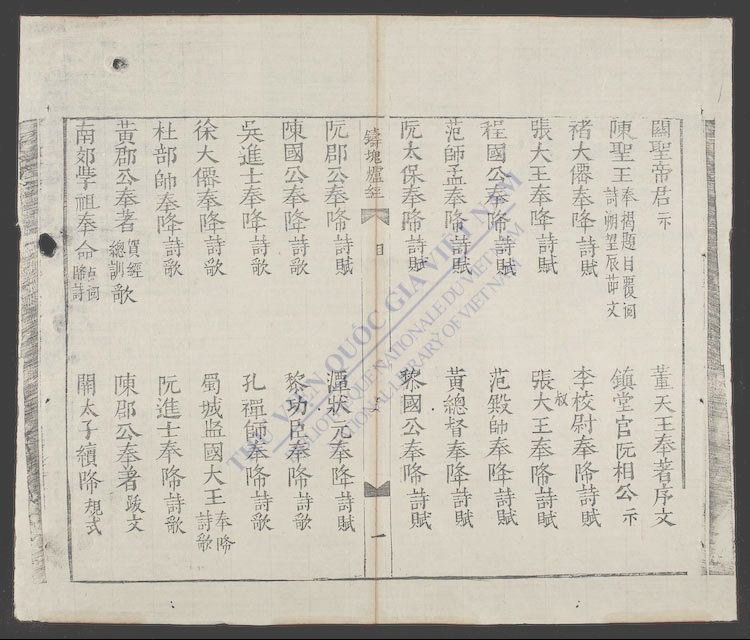 關聖帝君示 董天王奉著序文
陳聖王奉揭題目覆閱詩朔望辰節文 鎮堂官阮相公示
褚大僊奉降詩賦 李校尉奉降詩賦
張大王奉降詩賦 張大王叔奉降詩賦
程國公奉降詩賦 范殿帥奉降詩賦
范師孟奉降詩賦 黃總督奉降詩賦
阮太保奉降詩賦 黎國公奉降詩賦
鑄塊爐經 目 一
阮郡公奉降詩賦 潭狀元奉降詩賦
陳國公奉降詩歌 黎功臣奉降詩歌
吳進士奉降詩歌 孔禪師奉降詩歌
徐大僊奉降詩歌 蜀城監國大王奉降詩歌
杜部帥奉降詩歌 阮進士奉降詩歌
黃郡公奉著經總訓歌 陳郡公奉著跋文
南郊學祖奉命閱詩 關太子續降規式
THƯ VIỆN QUỐC GIA VIỆT NAM
BIBLIOTHÈQUE NATIONALE DU VIETNAM
NATIONAL LIBRARY OF VIETNAM